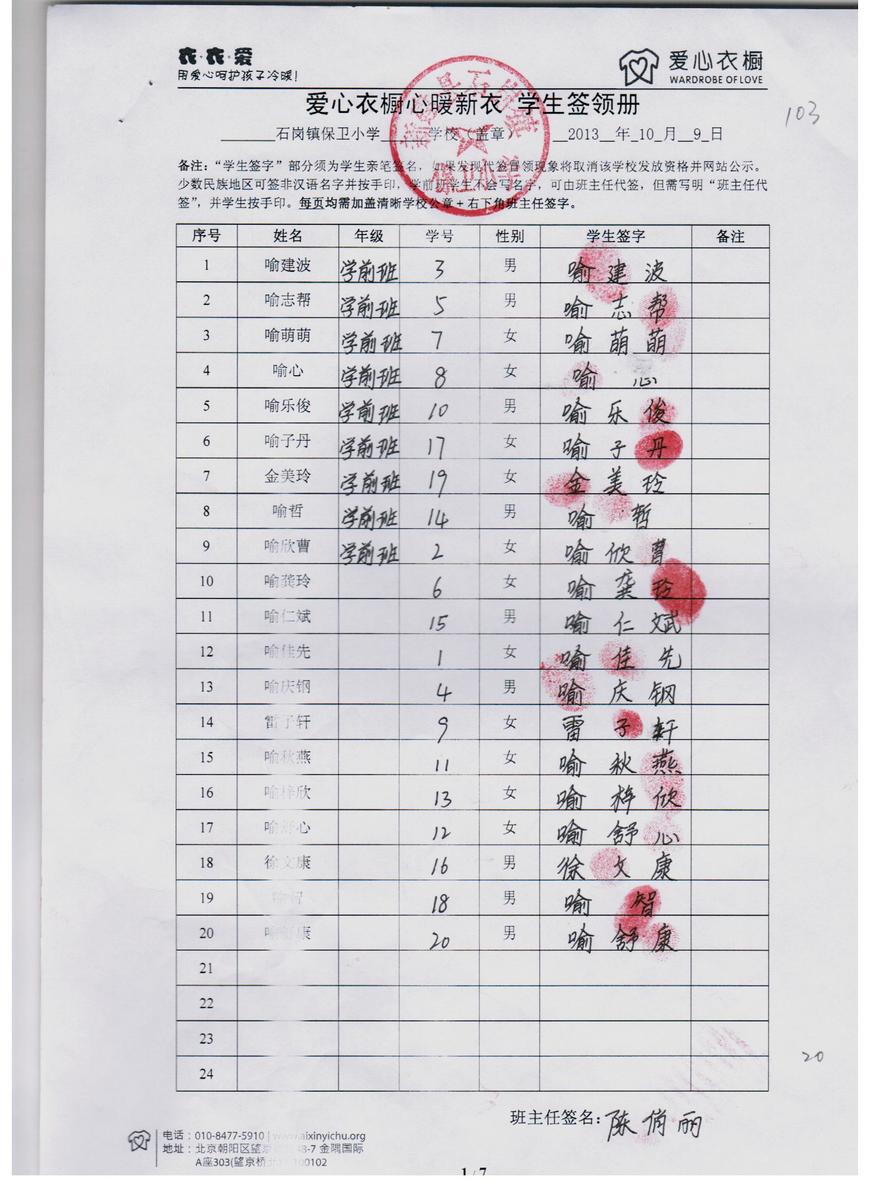 衣·衣·爱
用爱心呵护孩子冷暖!
爱心衣橱
WARDROBE OF LOVE
爱心衣橱心暖新衣 学生签领册
103
石岗镇保卫小学 学校(盖章) 2013 年 10 月 9 日
备注:“学生签字”部分须为学生亲笔签名,如果发现代签冒领现象将取消该学校发放资格并网站公示。
少数民族地区可签非汉语名字并按手印,学前班学生不会写名字,可由班主任代签,但需写明“班主任代
签”,并学生按手印。每页均需加盖清晰学校公章+右下角班主任签字。
序号 姓名 年级 学号 性别 学生签字 备注
1 喻建波 学前班 3 男 喻建波
2 喻志帮 学前班 5 男 喻志帮
3 喻萌萌 学前班 7 女 喻萌萌
4 喻心 学前班 8 女 喻心
5 喻乐俊 学前班 10 男 喻乐俊
6 喻子丹 学前班 17 女 喻子丹
7 金美玲 学前班 19 女 金美玲
8 喻哲 学前班 14 男 喻哲
9 喻欣曹 学前班 2 女 喻欣曹
10 喻龚玲 6 女 喻龚玲
11 喻仁斌 15 男 喻仁斌
12 喻佳先 1 女 喻佳先
13 喻庆钢 4 男 喻庆钢
14 雷子轩 9 女 雷子轩
15 喻秋燕 11 女 喻秋燕
16 喻梓欣 13 女 喻梓欣
17 喻舒心 12 女 喻舒心
18 徐文康 16 男 徐文康
19 喻智 18 男 喻智
20 喻舒康 20 男 喻舒康
21
22
23
24
20
班主任签名:陈俏丽
电话:010-8477-5910 | www.aixinyichu.org
地址:北京朝阳区望 -7 金隅国际
A座303(望京桥 100102
1 / 7